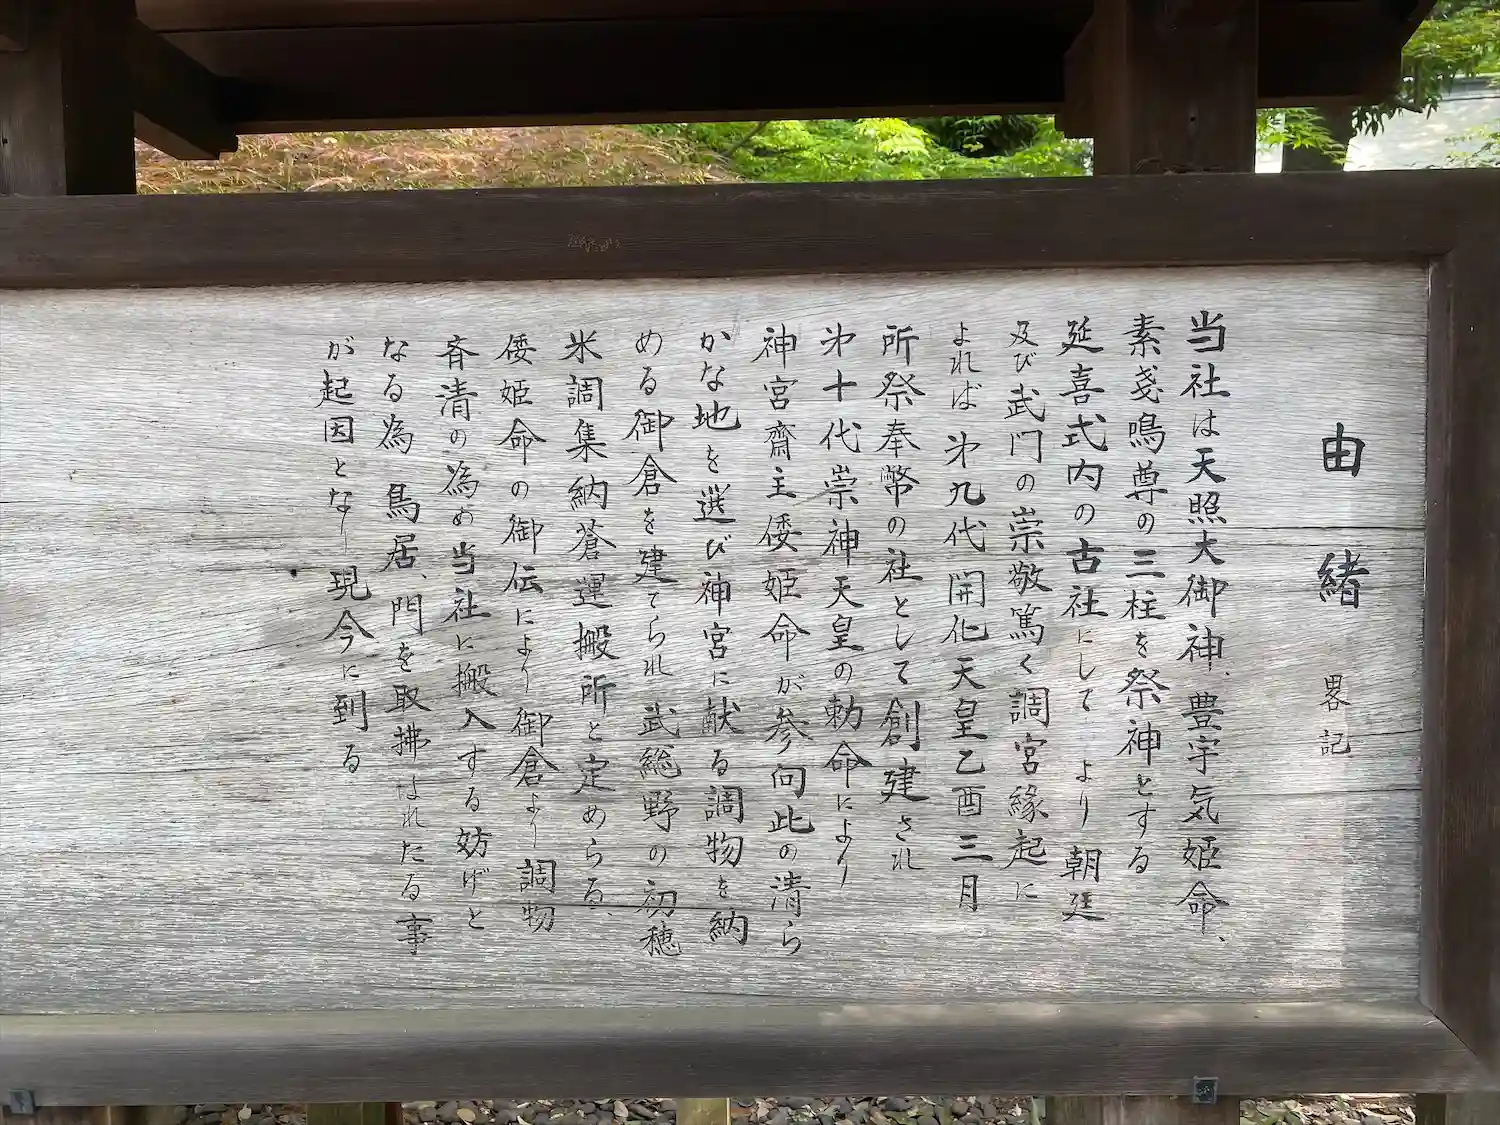 由緒 畧記
当社は天照大御神、豊宇気姫命、
素戔鳴尊の三柱を祭神とする
延喜式内の古社にして より朝廷
及び武門の崇敬篤く調宮縁起に
よれば 㐧九代開化天皇乙酉三月
所祭奉幣の社として創建され
㐧十代崇神天皇の勅命により
神宮齋主倭姫命が参向此の清ら
かな地を選び神宮に献る調物を納
める御倉を建てられ 武総野の初穂
米調集納蒼運搬所と定めらる、
倭姫命の御伝により 御倉より調物
斉清の為め当社に搬入する妨げと
なる為 鳥居、門を取拂はれたる事
が起因となり現今に到る